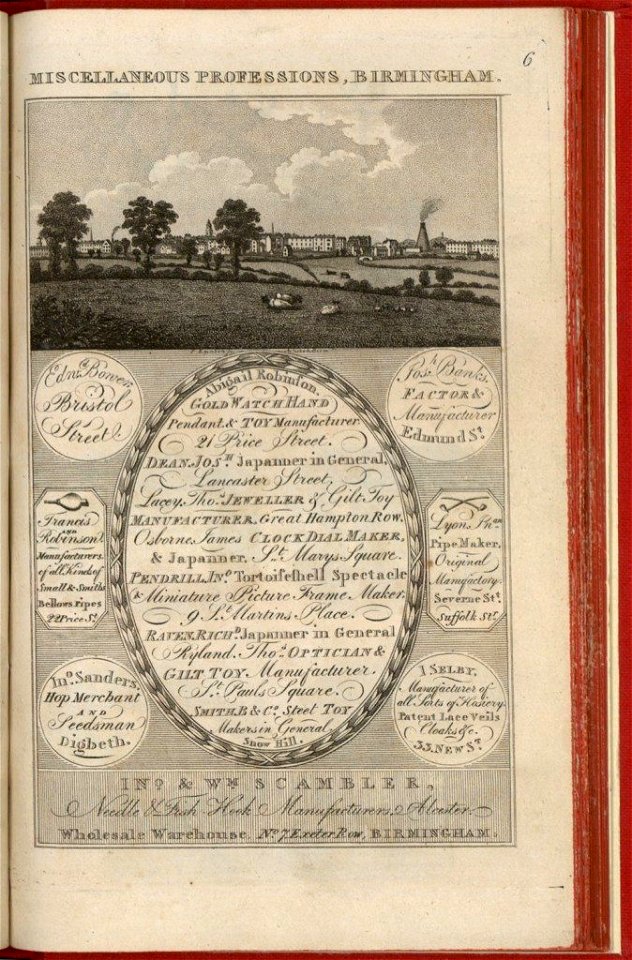 6
MISCELLANEOUS PROFESSIONS, BIRMINGHAM.
Edwd. Bower,
Bristol
Street.
Abigail Robinson,
GOLD WATCH HAND
Pendant & TOY Manufacturer
21 Price Street.
DEAN, JOSH. Japanner in General,
Lancaster Street.
Lacey, Thos. JEWELLER & Gilt Toy
MANUFACTURER, Great Hampton Row.
Osborne, James CLOCK DIAL MAKER,
& Japanner. St. Marys Square.
PENDRILL, Jno. Tortoiseshell Spectacle
& Miniature Picture Frame Maker.
9 St. Martins Place.
RAVEN, RICHD. Japanner in General
Ryland, Thos. OPTICIAN &
GILT TOY Manufacturer.
St. Pauls Square.
SMITH, B & Co. Steel TOY
Makers in General
Snow Hill.
Josh. Banks,
FACTOR &
Manufacturer
Edmund St.
Francis
AND
Robinson
Manufacturers
of all Kinds of
Small & Smiths
Bellows Pipes
22 Price St.
Lyon,
Pipe Maker,
Original
Manufactory
Severne St.
Suffolk St.
Jno. Sanders,
Hop Merchant
AND
Seedsman
Digbeth.
I SELBY,
Manufacturer of
all Sorts of Hosiery
Patent Lace Veils
Cloaks &c.
33, NEW ST.
JNO. & WM. SCAMBLER,
Needle & Fish Hook Manufacturers, Alcester.
Wholesale Warehouse. No. 7 Exeter Row, BIRMINGHAM.